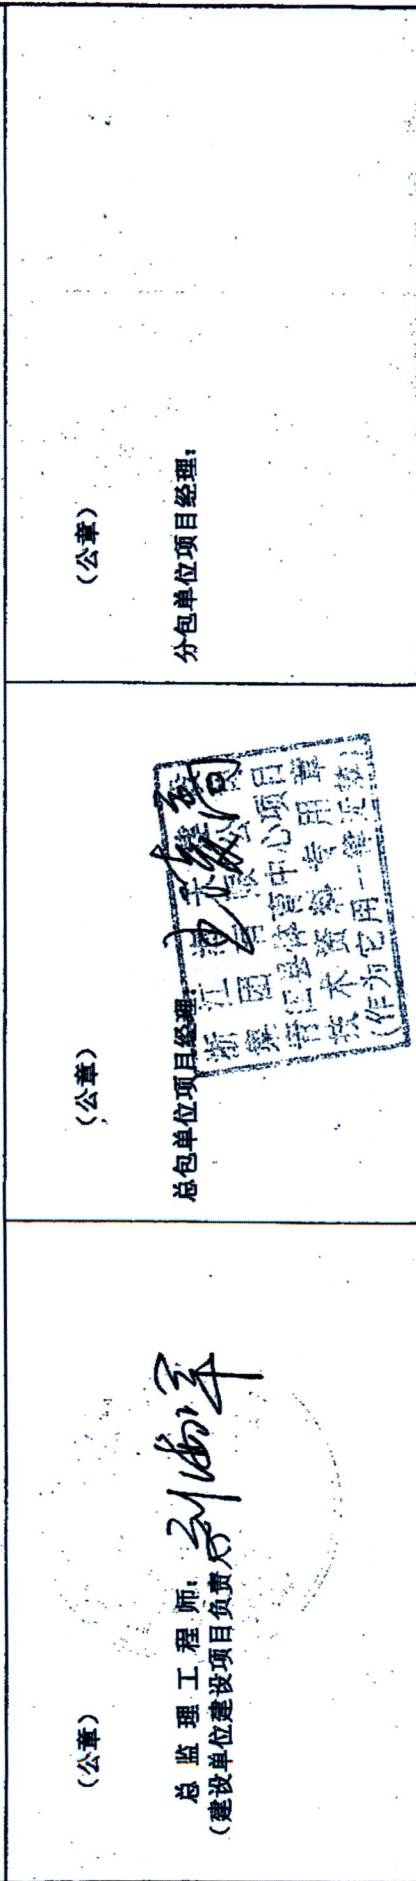 （公章）
总监理工程师：刘海军
（建设单位建设项目负责人）
（公章）
总包单位项目经理：
浙江
集团有限公司
青田县体育中心项目
技术资料专用章
（作为它用一律无效）
（公章）
分包单位项目经理：